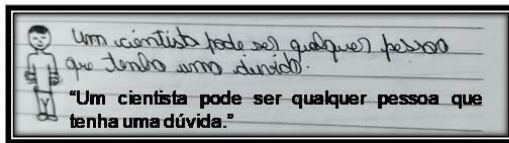 Um cientista pode ser qualquer pessoa
que tenha uma dúvida.
“Um cientista pode ser qualquer pessoa que
tenha uma dúvida.”